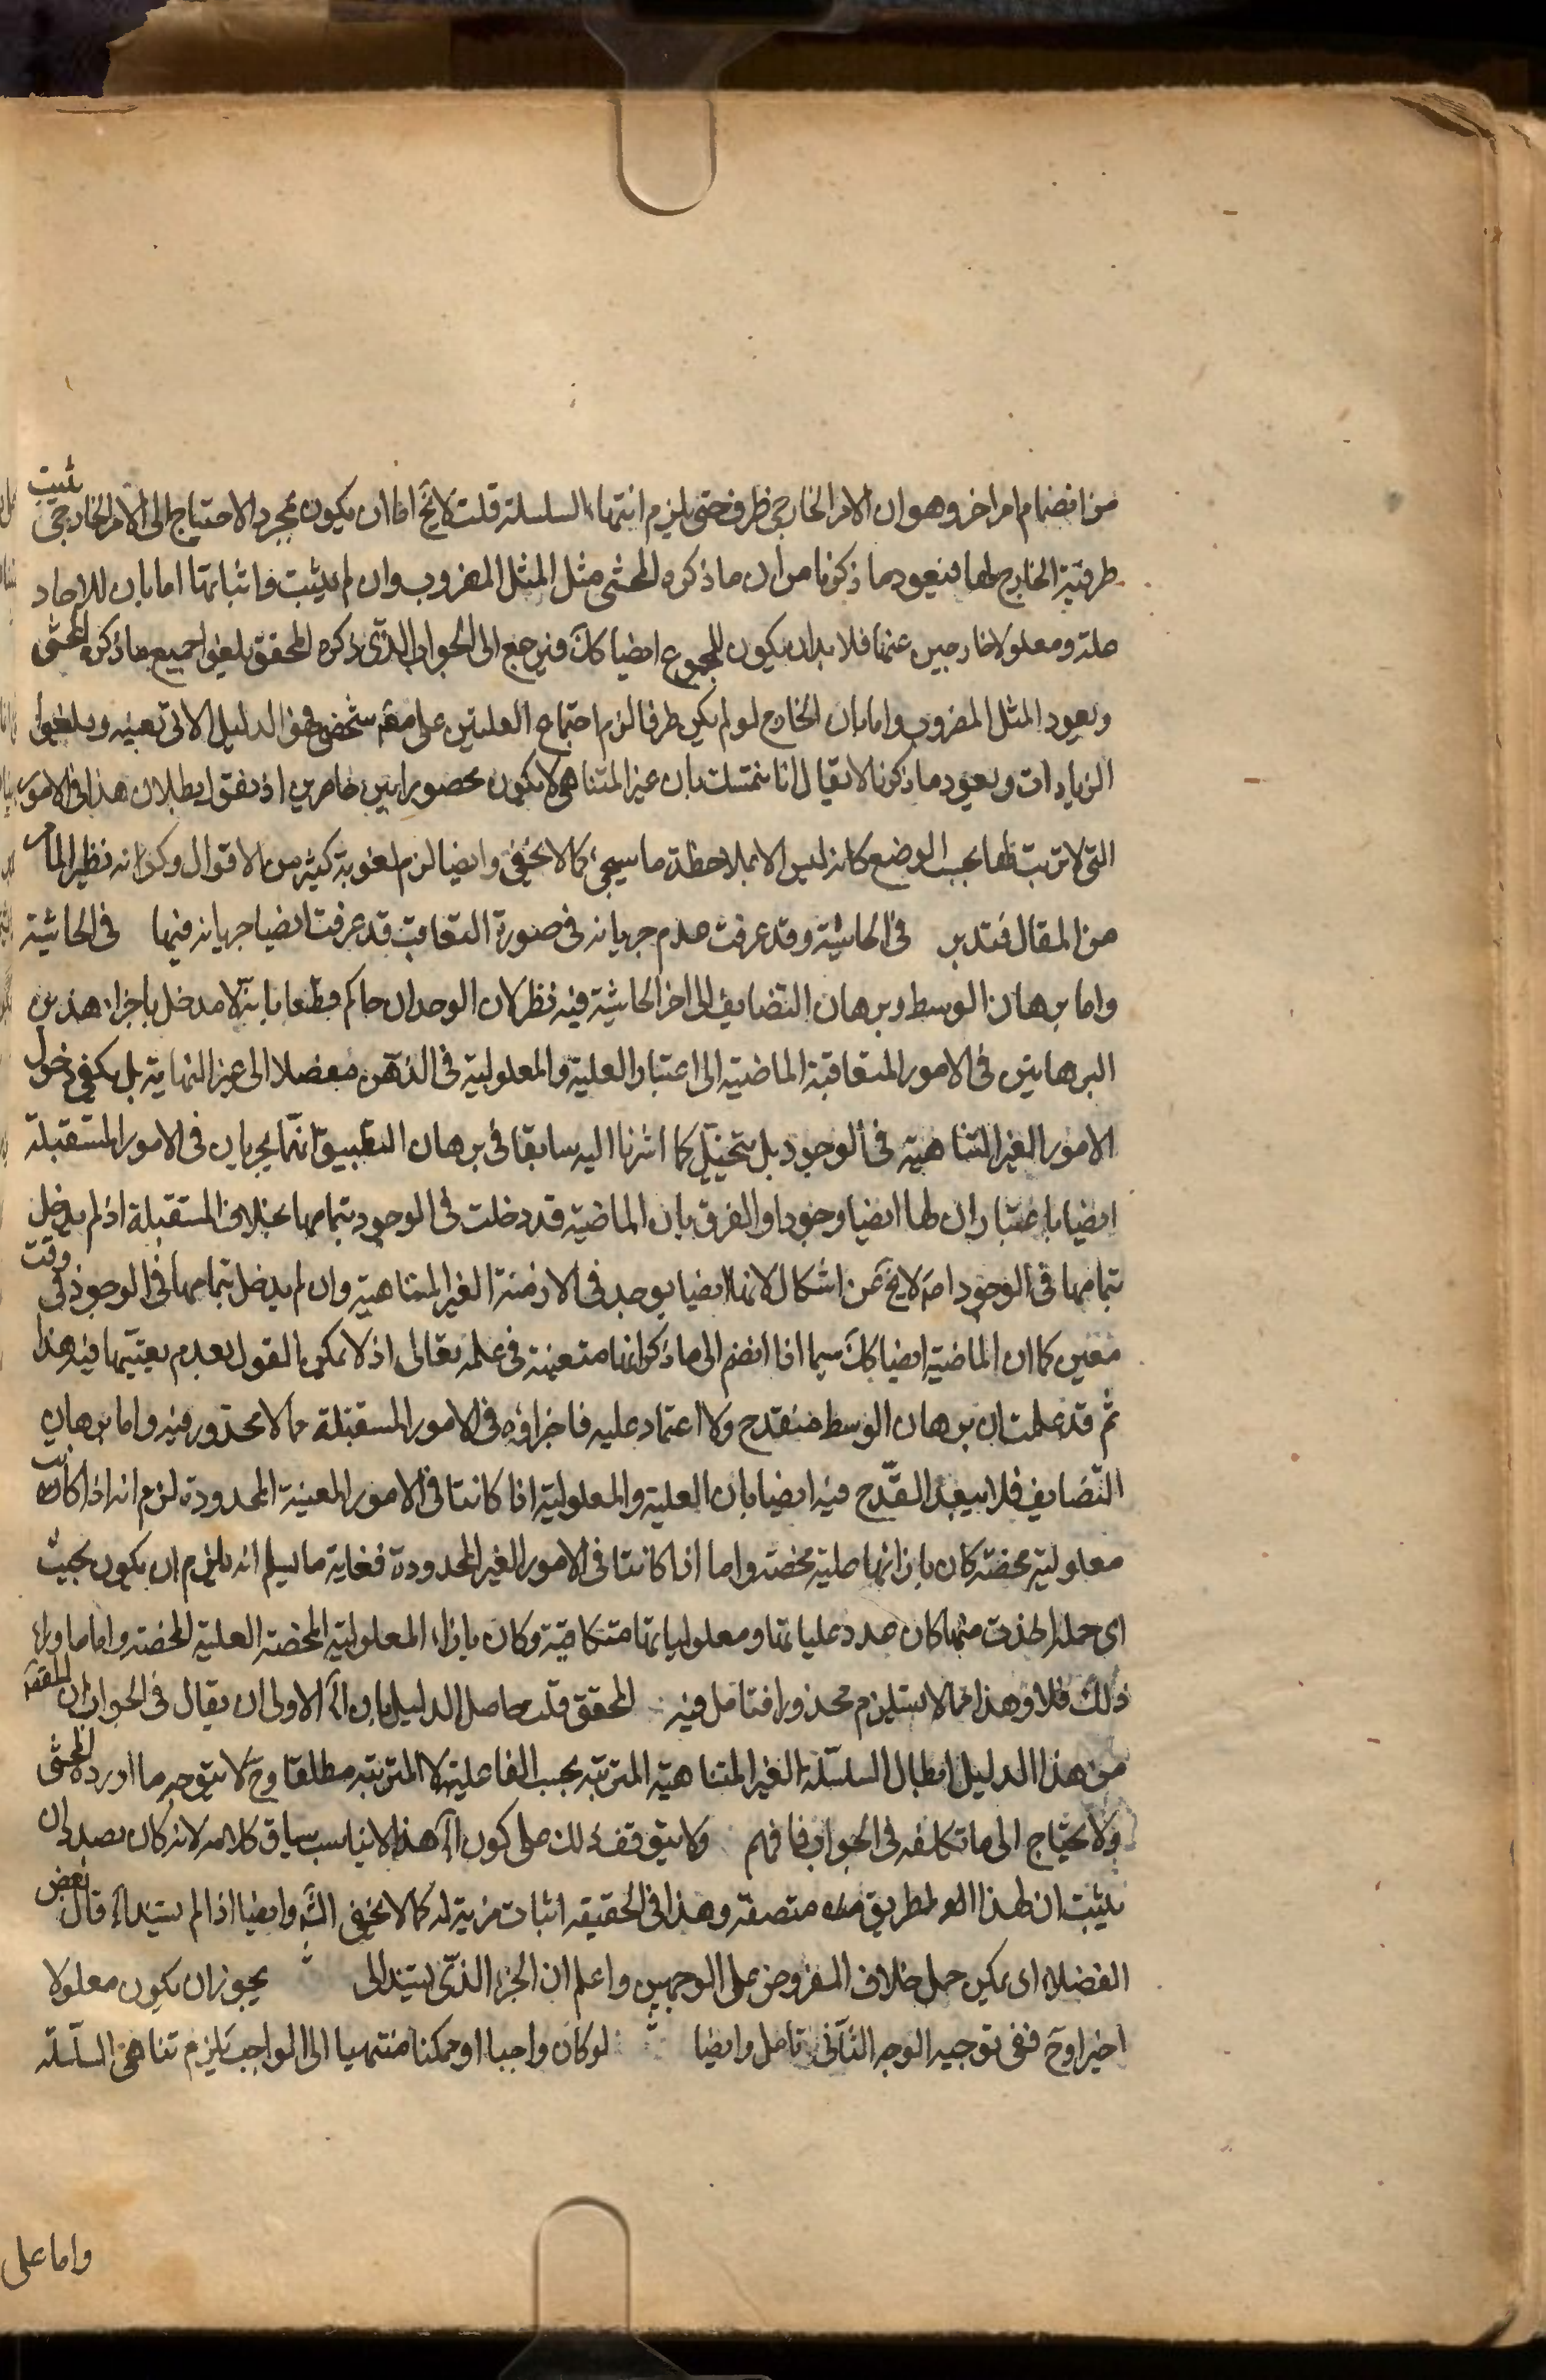 من انضمام امر اخر وهو ان الامر الخارجى ظرف حتى يلزم انتهاء السلسلة قلت لا يخ اما ان يكون بمجرد الاحتياج الى الامر الخارجى يثبت
طرفية الخارج لها فيعود ما ذكرنا من ان ما ذكره المحشى مثل المثل المضروب وان لم يثبت فاثباتها اما بان للاحاد
علة ومعلولا خارجين عنها فلا بد ان يكون للمجموع ايضا كك فيرجع الى الجواب الذى ذكره المحقق يلغوا جميع ما ذكره المحشى
ويعود المثل المضروب واما بان الخارج لو لم يكن طرفا لزم اجتماع العلتين على مع شخصى فهو الدليل الاتى بعينه ويلغوا
الزيادات ويعود ما ذكرنا لا يقال انا نتمسك بان غير المتناهى لا يكون محصورا بين حاصرين اذ نقول بطلان هذا فى الامور
التى لا ترتب لها بحسب الوضع كانه ليس الا بملاحظة ما سيجئ كما لا يخفى وايضا لزم لغوية كثير من الاقوال وكو انه نظير المامر
من المقال فتدبر فى الحاشية وقد عرفت عدم جريانه فى صورة التعاقب قد عرفت ايضا جريانه فيها فى الحاشية
واما برهان الوسط وبرهان التضايف الى اخر الحاشية فيه نظر لان الوجدان حاكم قطعا بانه لا مدخل باجراء هذين
البرهانين فى الامور المتعاقبة الماضية الى اعتبار العلية والمعلولية فى الذهن مفصلا الى غير النهاية بل يكفى دخول
الامور الغير المتناهية فى الوجود بل نتخيل كما اشرنا اليه سابقا فى برهان التطبيق انهما يجريان فى الامور المستقبلة
ايضا باعتبار ان لها ايضا وجودا والفرق بان الماضية قد دخلت فى الوجود بتمامها بخلاف المستقبلة اذ لم يدخل
بتمامها فى الوجود امر لا يخ عن اشكال لانها ايضا يوجد فى الازمنة الغير المتناهية وان لم يدخل بتمامها فى الوجود فى وقت
معين كما ان الماضية ايضا كك سيما اذا انضم الى ما ذكر انها متعينة فى علمه تعالى اذ لا يمكن القول بعدم تعينها فيه هذا
ثم قد علمت ان برهان الوسط منقدح ولا اعتماد عليه فاجراؤه فى الامور المستقبلة مما لا محذور فيه واما برهان
التضايف فلا يبعد القدح فيه ايضا بان العلية والمعلولية اذا كانتا فى الامور المعينة المحدودة لزم انه اذا كانت
معلولية محضة كان بازائها علية محضة واما اذا كانتا فى الامور الغير المحدودة فغاية ما يسلم انه يلزم ان يكون بحيث
اى جملة اخذت منها كان عدد علياتها ومعلولياتها متكافية وكان بازاء المعلولية المحضة العلية المحضة واما ما وراء
ذلك فلا وهذا مما لا يستلزم محذورا فتامل فيه المحقق قلت حاصل الدليل بان آه الاولى ان يقال فى الجواب ان المقصود
من هذا الدليل ابطال السلسلة الغير المتناهية المترتبة بحسب الفاعلية لا المترتبة مطلقا وح لا يتوجه ما اورده المحشى
ولا يحتاج الى ما تكلفه فى الجواب فافهم ولا يتوقف ذلك على كون آه هذا لا يناسب سياق كلامه لانه كان بصدد ان
يثبت ان لهذا الطريق متصفة وهذا فى الحقيقة اثبات مزية له كما لا يخفى وايضا اذا لم يستند آه قال بعض
الفضلاء اى يمكن حمل خلاف المفروض على الوجهين واعلم ان الجزء الذى يستند الى يجوز ان يكون معلولا
اخيرا وح ففى توجيه الوجه الثانى تامل وايضا لو كان واجبا او ممكنا منتهيا الى الواجب يلزم تناهى السلسلة
واما على